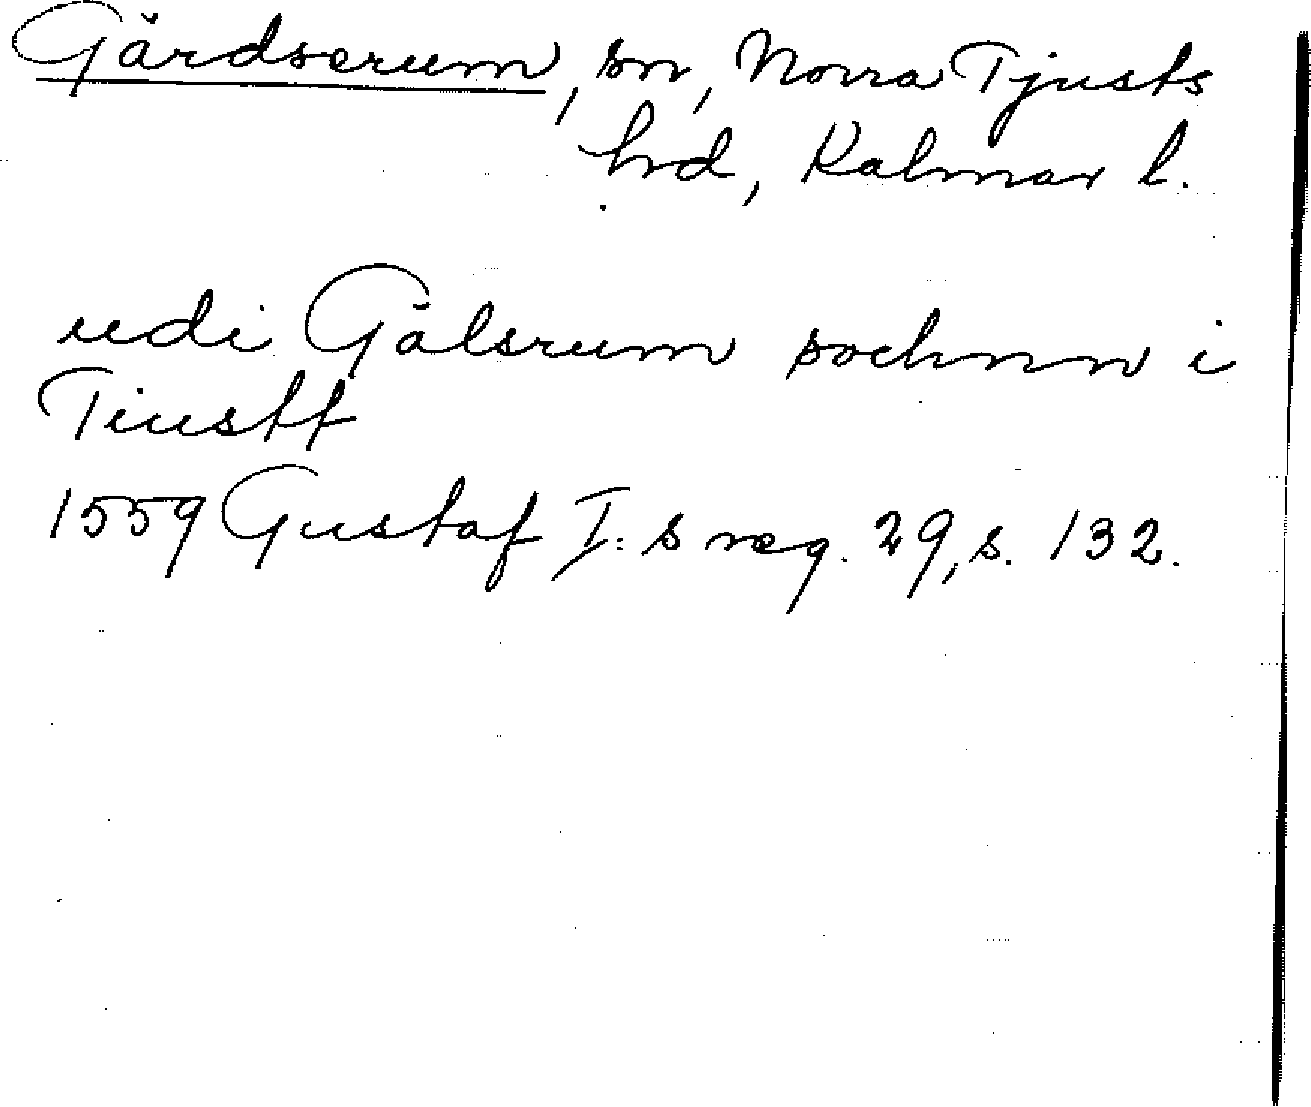 Gärdserum, sn, Norra Tjusts
hrd, Kalmar l.
udi Gålsrum sochnn i
Tiustt
1559 Gustaf I:s reg. 29, s. 132.